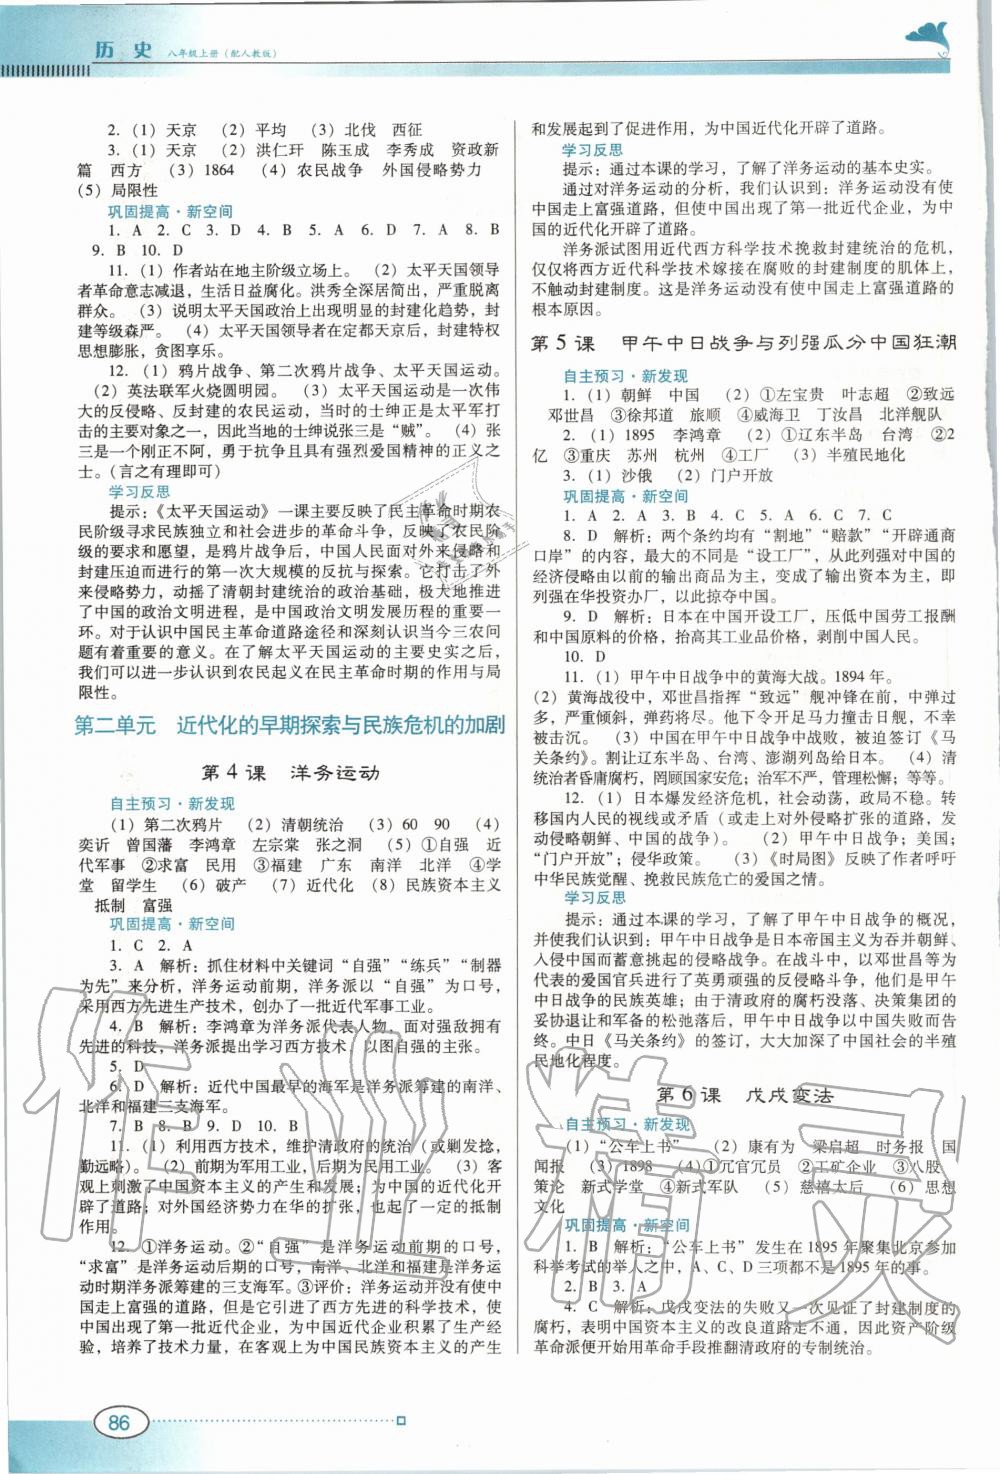 历 史 八年级上册（配人教版）
2.（1）天京 （2）平均 （3）北伐 西征
3.（1）天京 （2）洪仁玕 陈玉成 李秀成 资政新
篇 西方 （3）1864 （4）农民战争 外国侵略势力
（5）局限性
巩固提高·新空间
1. A 2. C 3. D 4. B 5. A 6. D 7. A 8. B
9. B 10. D
11.（1）作者站在地主阶级立场上。（2）太平天国领导
者革命意志减退，生活日益腐化。洪秀全深居简出，严重脱离
群众。（3）说明太平天国政治上出现明显的封建化趋势，封
建等级森严。（4）太平天国领导者在定都天京后，封建特权
思想膨胀，贪图享乐。
12.（1）鸦片战争、第二次鸦片战争、太平天国运动。
（2）英法联军火烧圆明园。（3）太平天国运动是一次伟
大的反侵略、反封建的农民运动，当时的士绅正是太平军打
击的主要对象之一，因此当地的士绅说张三是“贼”。（4）张
三是一个刚正不阿，勇于抗争且具有强烈爱国精神的正义之
士。（言之有理即可）
学习反思
提示：《太平天国运动》一课主要反映了民主革命时期农
民阶级寻求民族独立和社会进步的革命斗争，反映了农民阶
级的要求和愿望，是鸦片战争后，中国人民面对外来侵略和
封建压迫而进行的第一次大规模的反抗与探索。它打击了外
来侵略势力，动摇了清朝封建统治的政治基础，极大地推进
了中国的政治文明进程，是中国政治文明发展历程的重要一
环。对于认识中国民主革命道路途径和深刻认识当今三农问
题有着重要的意义。在了解太平天国运动的主要史实之后，
我们可以进一步认识到农民起义在民主革命时期的作用与局
限性。
第二单元 近代化的早期探索与民族危机的加剧
第 4 课 洋务运动
自主预习·新发现
（1）第二次鸦片 （2）清朝统治 （3）60 90 （4）
奕䜣 曾国藩 李鸿章 左宗棠 张之洞 （5）①自强 近
代军事 ②求富 民用 ③福建 广东 南洋 北洋 ④学
堂 留学生 （6）破产 （7）近代化 （8）民族资本主义
抵制 富强
巩固提高·新空间
1. C 2. A
3. A 解析：抓住材料中关键词“自强”“练兵”“制器
为先”来分析，洋务运动前期，洋务派以“自强”为口号，
采用西方先进生产技术，创办了一批近代军事工业。
4. B 解析：李鸿章为洋务派代表人物。面对强敌拥有
先进的科技，洋务派提出学习西方技术，以图自强的主张。
5. D
6. D 解析：近代中国最早的海军是洋务派筹建的南洋、
北洋和福建三支海军。
7. B 8. B 9. D 10. B
11.（1）利用西方技术，维护清政府的统治（或剿发捻，
勤远略）。（2）前期为军用工业，后期为民用工业。（3）客
观上刺激了中国资本主义的产生和发展；为中国的近代化开
辟了道路；对外国经济势力在华的扩张，也起了一定的抵制
作用。
12. ①洋务运动。②“自强”是洋务运动前期的口号，
“求富”是洋务运动后期的口号；南洋、北洋和福建是洋务运
动时期洋务派筹建的三支海军。③评价：洋务运动并没有使中国
走上富强的道路，但是它引进了西方先进的科学技术，使中
国出现了第一批近代企业，为中国近代企业积累了生产经
验，培养了技术力量，在客观上为中国民族资本主义的产生
86
和发展起到了促进作用，为中国近代化开辟了道路。
学习反思
提示：通过本课的学习，了解了洋务运动的基本史实。
通过对洋务运动的分析，我们认识到：洋务运动没有使
中国走上富强道路，但使中国出现了第一批近代企业，为中
国的近代化开辟了道路。
洋务派试图用近代西方科学技术挽救封建统治的危机，
仅仅将西方近代科学技术嫁接在腐败的封建制度的肌体上，
不触动封建制度。这是洋务运动没有使中国走上富强道路的
根本原因。
第 5 课 甲午中日战争与列强瓜分中国狂潮
自主预习·新发现
1.（1）朝鲜 中国 （2）①左宝贵 叶志超 ②致远
邓世昌 ③徐邦道 旅顺 ④威海卫 丁汝昌 北洋舰队
2.（1）1895 李鸿章 （2）①辽东半岛 台湾 ②2
亿 ③重庆 苏州 杭州 ④工厂 （3）半殖民地化
3.（1）沙俄 （2）门户开放
巩固提高·新空间
1. A 2. A 3. B 4. C 5. A 6. C 7. C
8. D 解析：两个条约均有“割地”“赔款”“开辟通商
口岸”的内容，最大的不同是“设工厂”，从此列强对中国的
经济侵略由以前的输出商品为主，变成了输出资本为主，即
列强在华投资办厂，以此掠夺中国。
9. D 解析：日本在中国开设工厂，压低中国劳工报酬
和中国原料的价格，抬高其工业品价格，剥削中国人民。
10. D
11.（1）甲午中日战争中的黄海大战。1894 年。
（2）黄海战役中，邓世昌指挥“致远”舰冲锋在前，中弹过
多，严重倾斜，弹药将尽。他下令开足马力撞击日舰，不幸
被击沉。（3）中国在甲午中日战争中战败，被迫签订《马
关条约》。割让辽东半岛、台湾、澎湖列岛给日本。（4）清
统治者昏庸腐朽，罔顾国家安危；治军不严，管理松懈；等等。
12.（1）日本爆发经济危机，社会动荡，政局不稳。转
移国内人民的视线或矛盾（或走上对外侵略扩张的道路，发
动侵略朝鲜、中国的战争）。（2）甲午中日战争；美国；
“门户开放”；侵华政策。（3）《时局图》反映了作者呼吁
中华民族觉醒、挽救民族危亡的爱国之情。
学习反思
提示：通过本课的学习，了解了甲午中日战争的概况，
并使我们认识到：甲午中日战争是日本帝国主义为吞并朝鲜、
入侵中国而蓄意挑起的侵略战争。在战斗中，以邓世昌等为
代表的爱国官兵进行了英勇顽强的反侵略斗争，他们是甲午
中日战争的民族英雄；由于清政府的腐朽没落、决策集团的
妥协退让和军备的松弛落后，甲午中日战争以中国失败而告
终。中日《马关条约》的签订，大大加深了中国社会的半殖
民地化程度。
第 6 课 戊戌变法
自主预习·新发现
（1）“公车上书” （2）康有为 梁启超 时务报 国
闻报 （3）1898 （4）①冗官冗员 ②工矿企业 ③八股
策论 新式学堂 ④新式军队 （5）慈禧太后 （6）思想
文化
巩固提高·新空间
1. B 解析：“公车上书”发生在 1895 年聚集北京参加
科举考试的举人之中，A、C、D 三项都不是 1895 年的事。
2. B 3. A
4. C 解析：戊戌变法的失败又一次见证了封建制度的
腐朽，表明中国资本主义的改良道路走不通，因此资产阶级
革命派便开始用革命手段推翻清政府的专制统治。
作业精灵